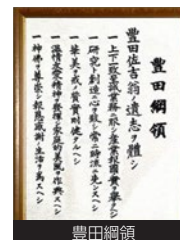 豊田綱領
豊田佐吉翁ノ遺志ヲ體シ
一、上下一致、至誠業務ニ服シ、産業報國ノ實ヲ擧グベシ
一、研究ト創造ニ心ヲ致シ、常ニ時流ニ先ンズベシ
一、華美ヲ戒メ、質實剛健タルベシ
一、温情友愛ノ精神ヲ發揮シ、家庭的美風ヲ作興スベシ
一、神佛ヲ尊崇シ、報恩感謝ノ生活ヲ爲スベシ
豊田綱領